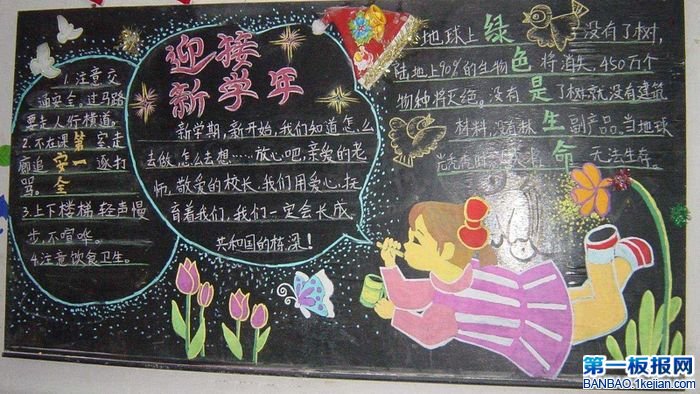 1.注意交
通安全,过马路
要走人行横道。
2.不在课室走
廊追逐打
骂。
安全第一
3.上下楼梯,轻声慢
步,不喧哗。
4.注意饮食卫生。
迎接
新学年
新学期,新开始,我们知道怎么
去做,怎么去想……放心吧,亲爱的老
师,敬爱的校长,我们用爱心,抚
育着我们,我们一定会长成
共和国的栋梁!
绿色是生命
地球上没有了树,
陆地上90%的生物将消失,450万个
物种将灭绝。没有了树就没有建筑
材料,没有林副产品。当地球
无法生存。
第一板报网
BANBAO.1kejian.com